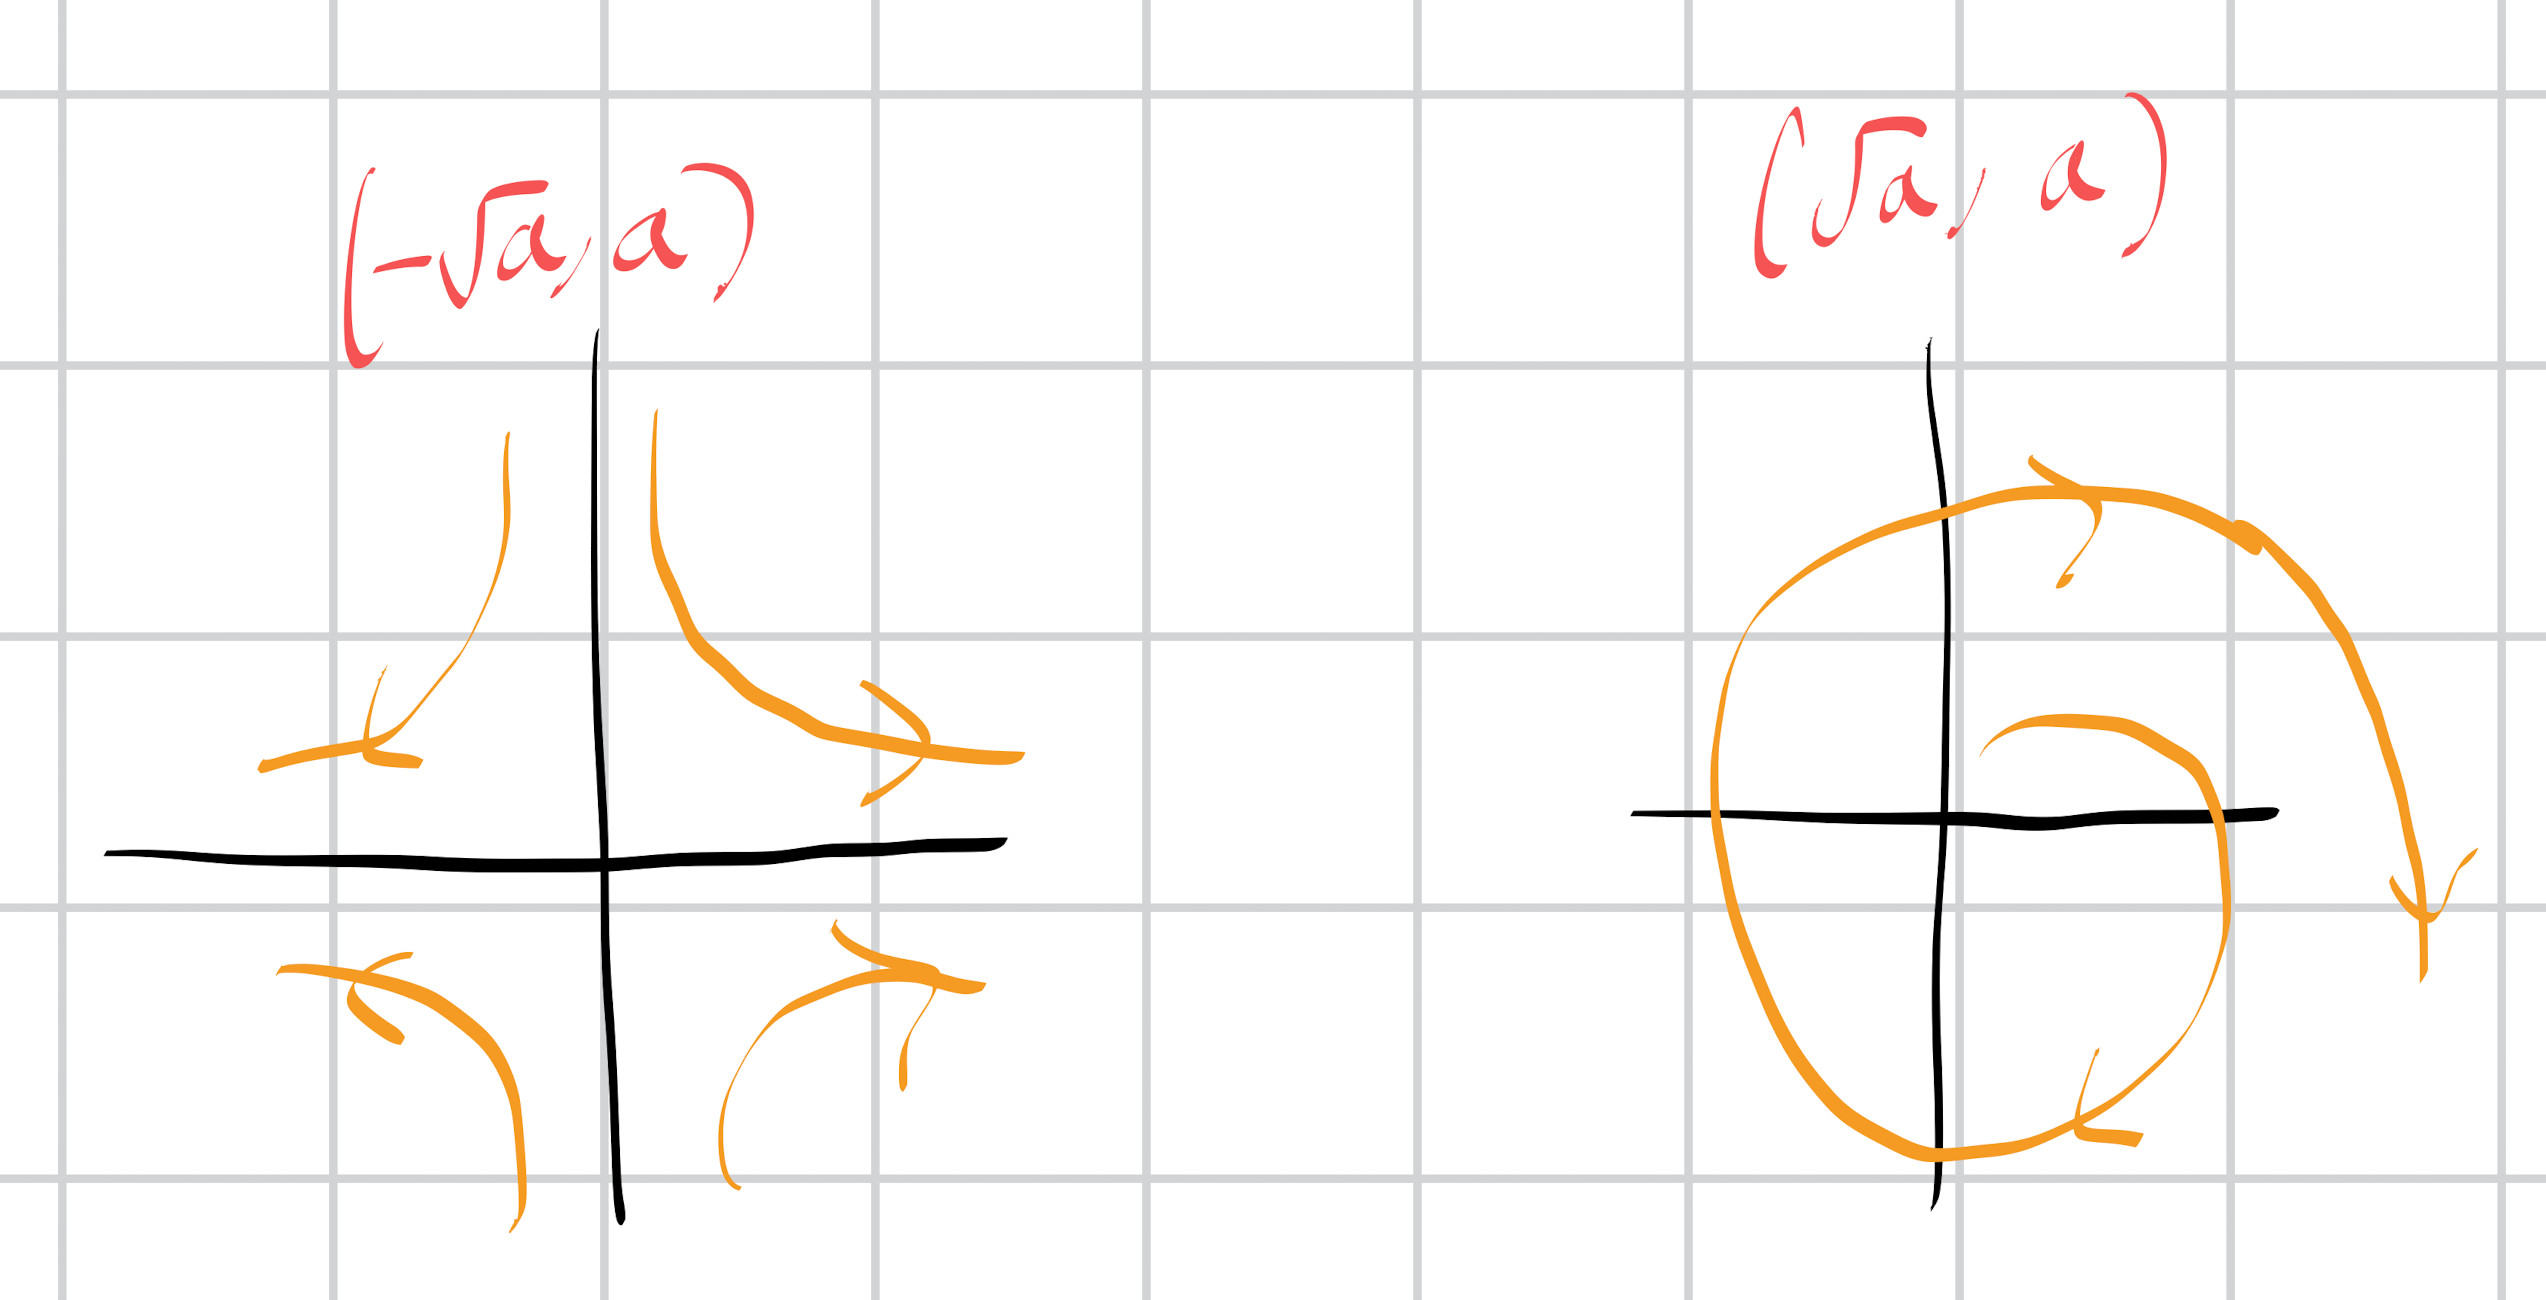 (-√a, a)
(√a, a)